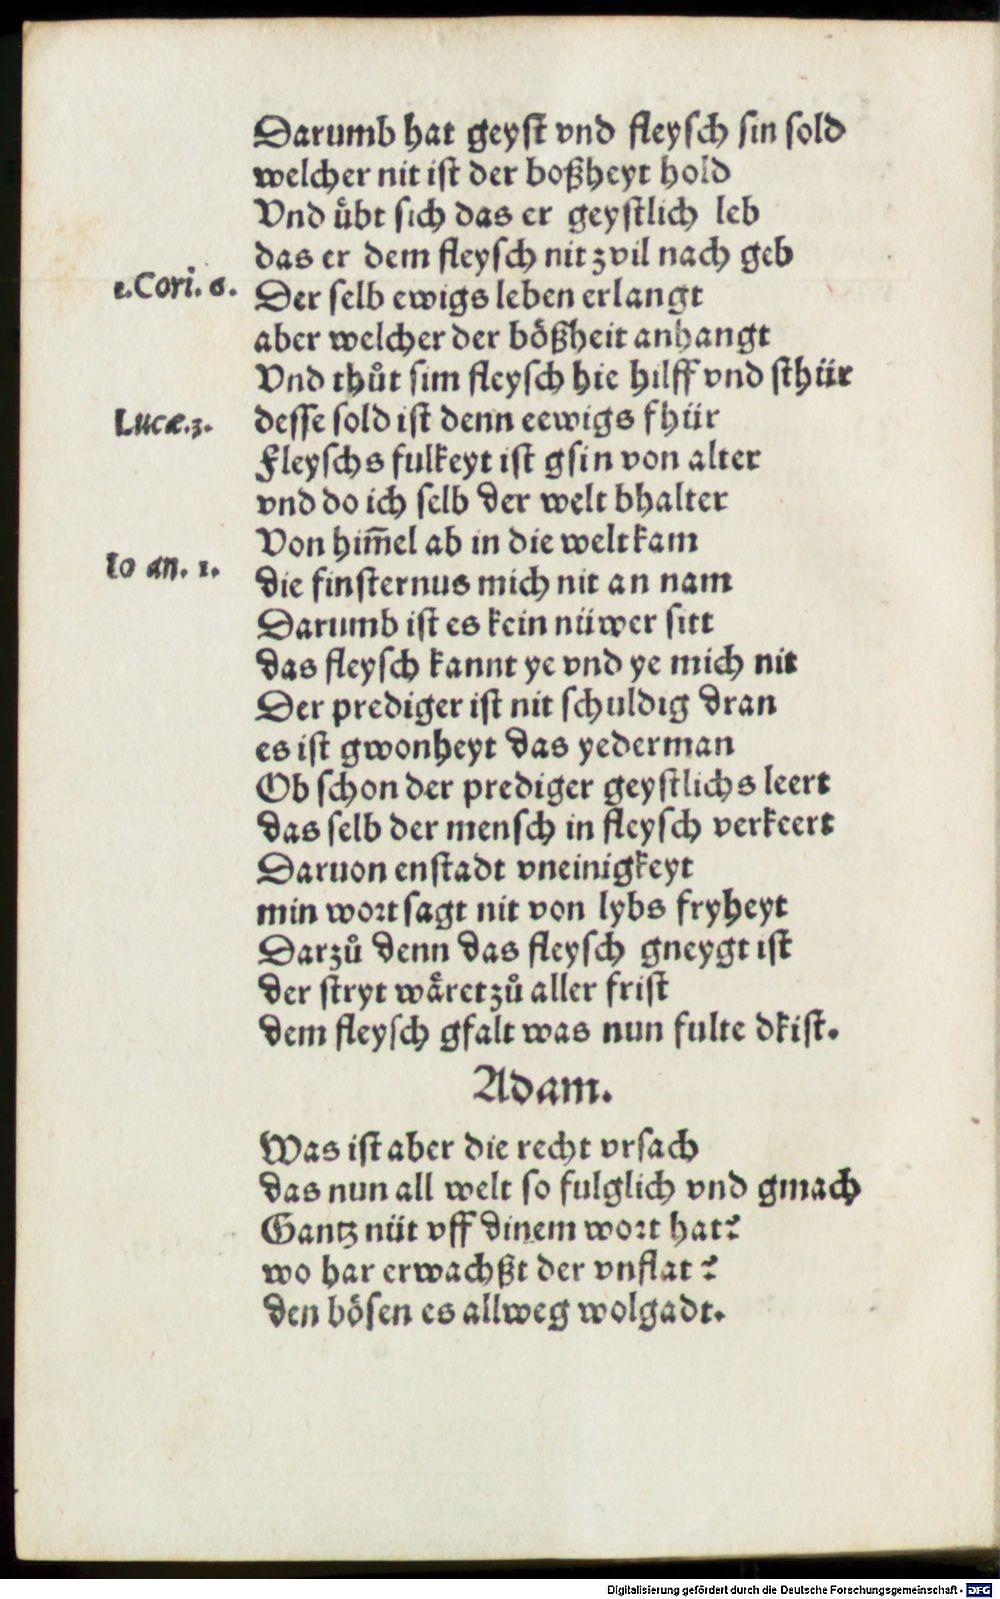 Darumb hat geyst vnd fleysch sin sold
welcher nit ist der boßheyt hold
Vnd uͤbt sich das er geystlich leb
das er dem fleysch nit zvil nach geb
1.Cori. 6.
Der selb ewigs leben erlangt
aber welcher der boͤßheit anhangt
Vnd thuͦt sim fleysch hie hilff vnd sthür
Lucæ.3.
desse sold ist denn eewigs fhür
Fleyschs fulkeyt ist gsin von alter
vnd do ich selb der welt bhalter
Von him̄el ab in die welt kam
Io an. 1.
die finsternus mich nit an nam
Darumb ist es kein nüwer sitt
das fleysch kannt ye vnd ye mich nit
Der prediger ist nit schuldig dran
es ist gwonheyt das yederman
Ob schon der prediger geystlichs leert
das selb der mensch in fleysch verkeert
Daruon enstadt vneinigkeyt
min wort sagt nit von lybs fryheyt
Darzuͦ denn das fleysch gneygt ist
der stryt waͤret zuͦ aller frist
dem fleysch gfalt was nun fulte dkist.
Adam.
Was ist aber die recht vrsach
das nun all welt so fulglich vnd gmach
Gantz nüt vff dinem wort hat?
wo har erwachßt der vnflat?
den boͤsen es allweg wolgadt.
Digitalisierung gefördert durch die Deutsche Forschungsgemeinschaft - DFG